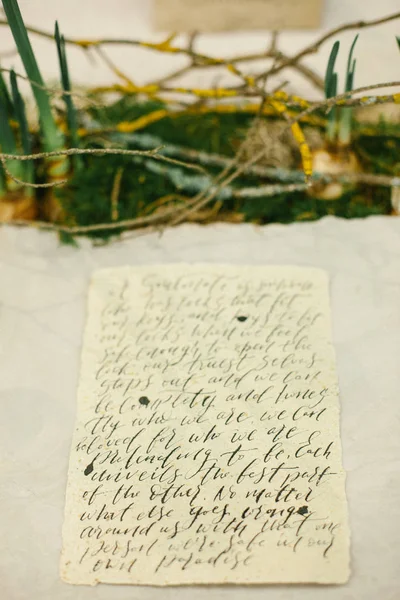 A Soulmate is someone
who has locks that fit
our keys, and keys to fit
our locks. When we feel
safe enough to open the
lock, our truest selves
steps out and we can
be completly and hones
tly who we are, we can
beloved for who we are
pretending to be. Each
unveils the best part
of the other. No matter
what else goes wrong
around us with that one
person we're safe in our
own paradise